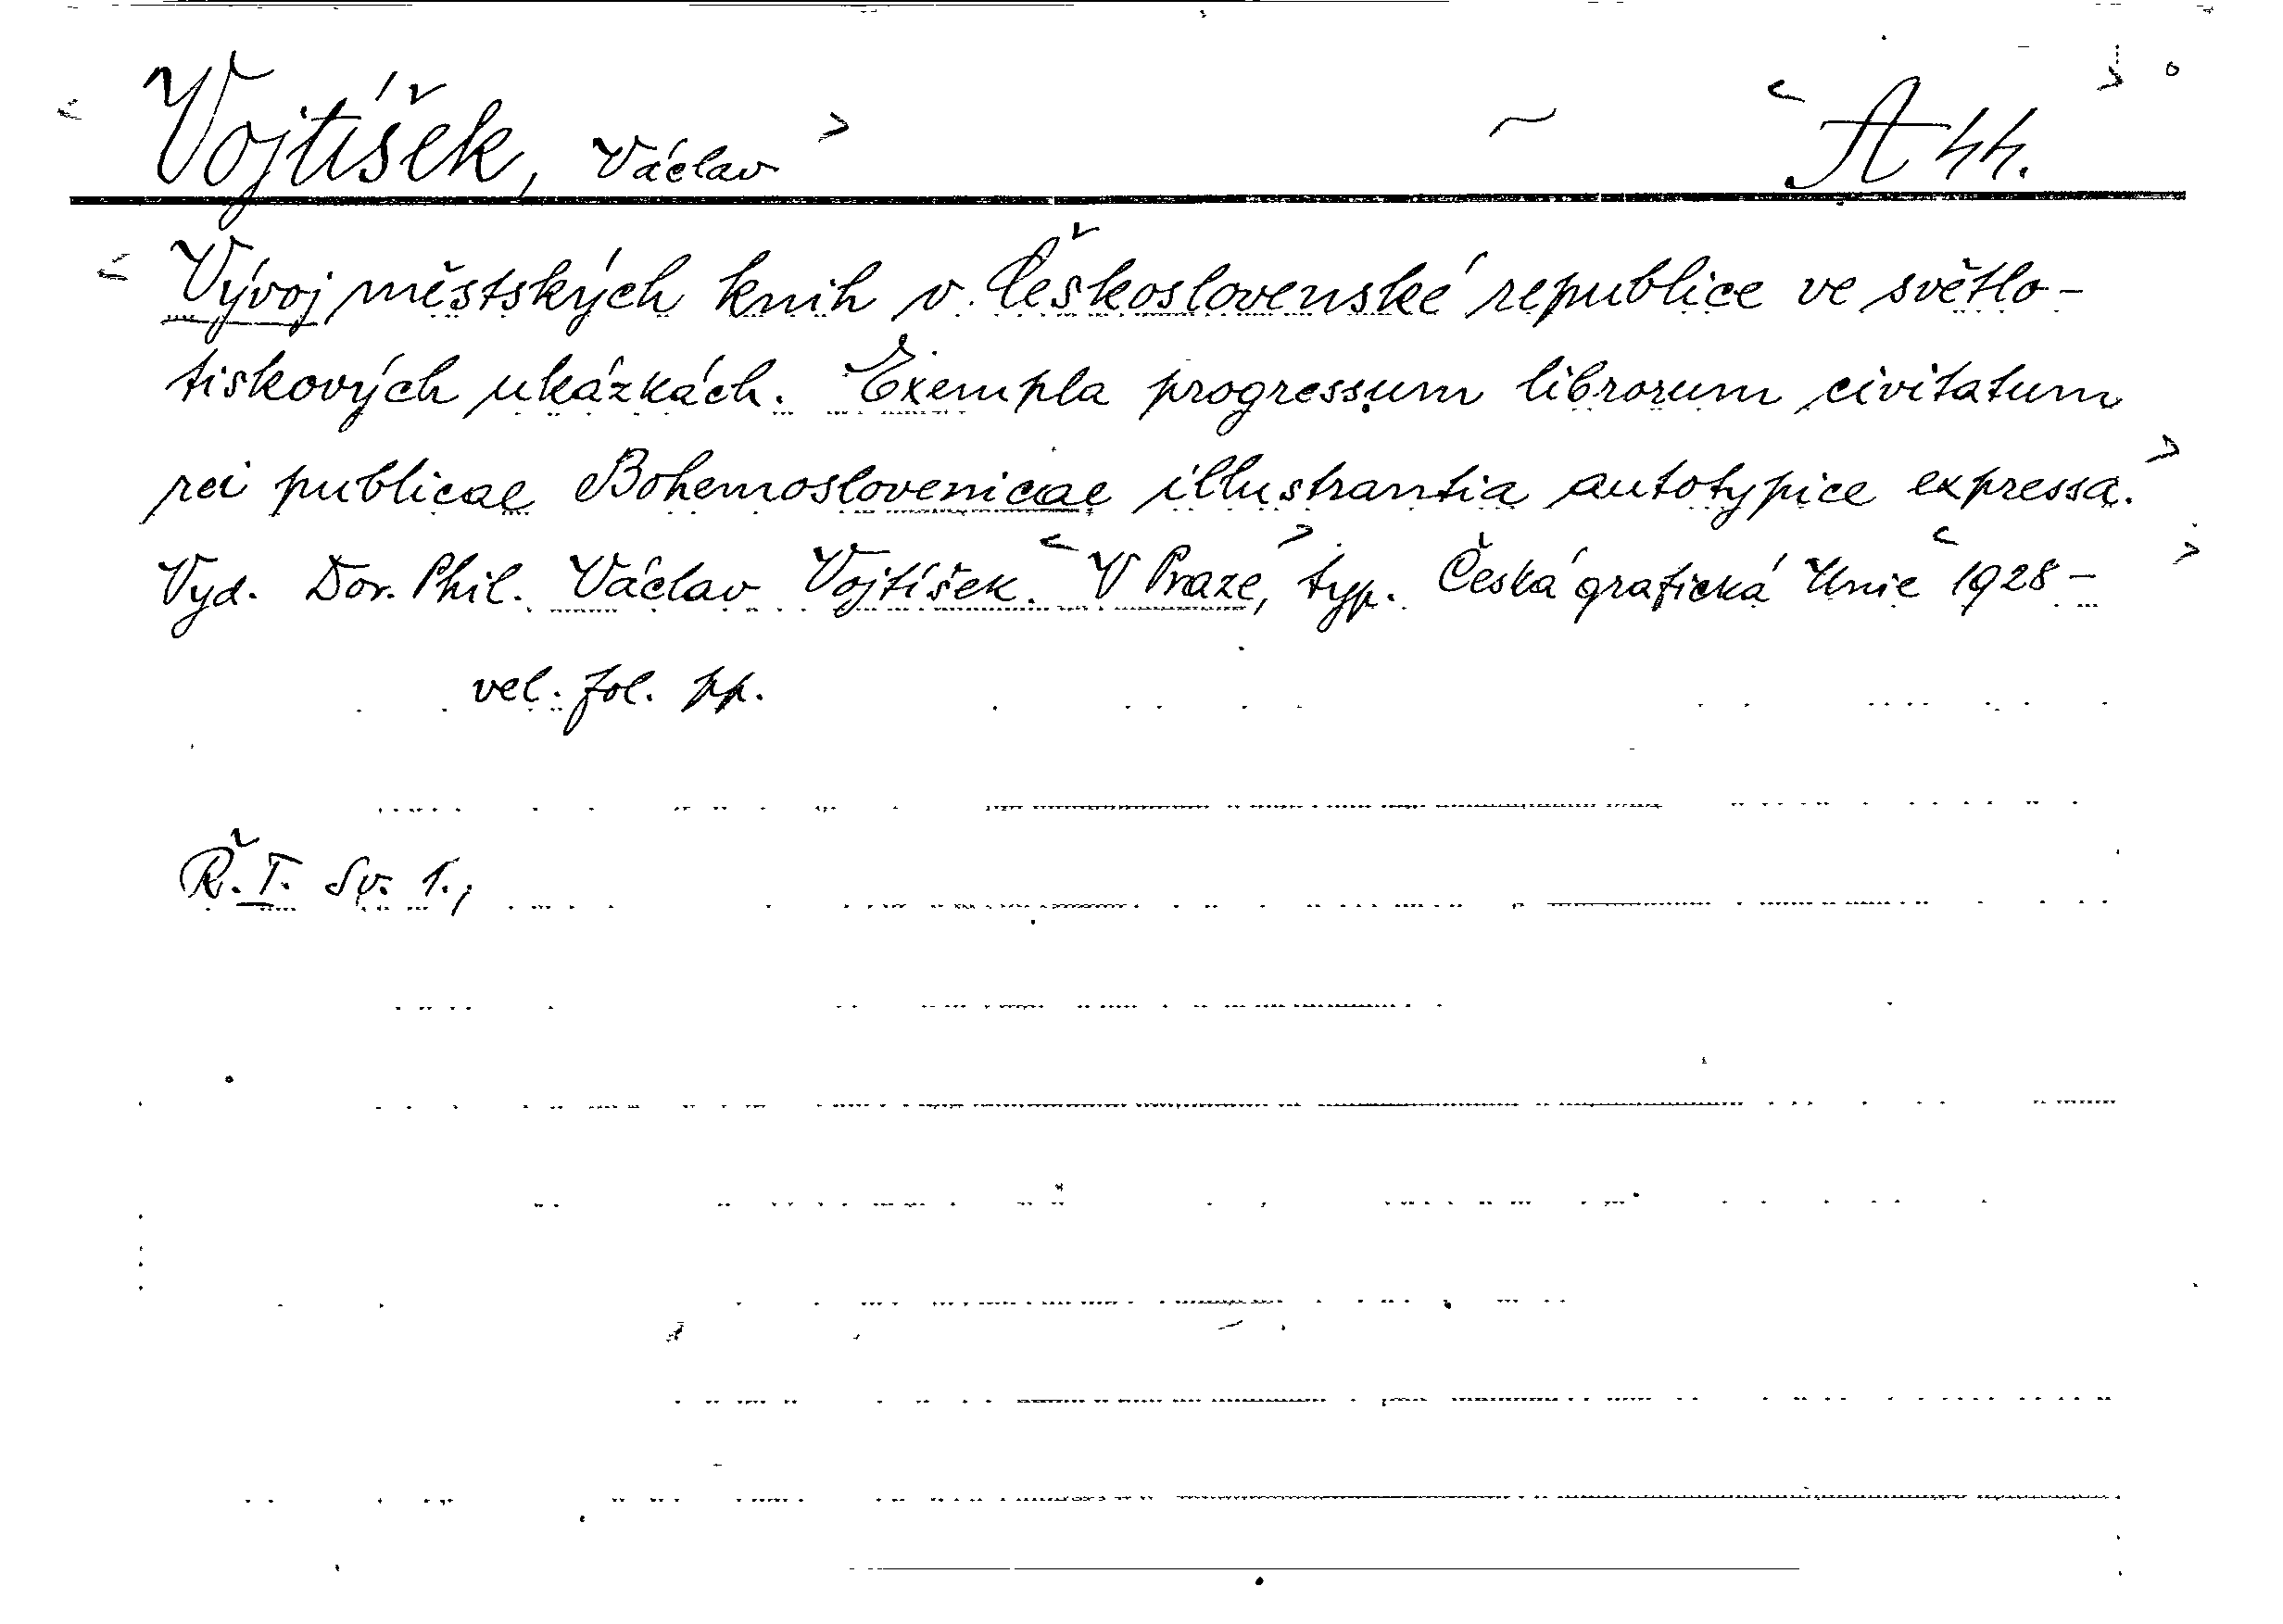 Vojtíšek, Václav A 44.
Vývoj městských knih v Československé republice ve světlo-
tiskových ukázkách. Exempla progressum librorum civitatum
rei publicae Bohemoslovenicae illustrantia autotypice expressa.
Vyd. Dor. Phil. Václav Vojtíšek. V Praze, typ. Česká grafická Unie 1928-
vel. fol. pp.
Ř. I. Sv. 1.,